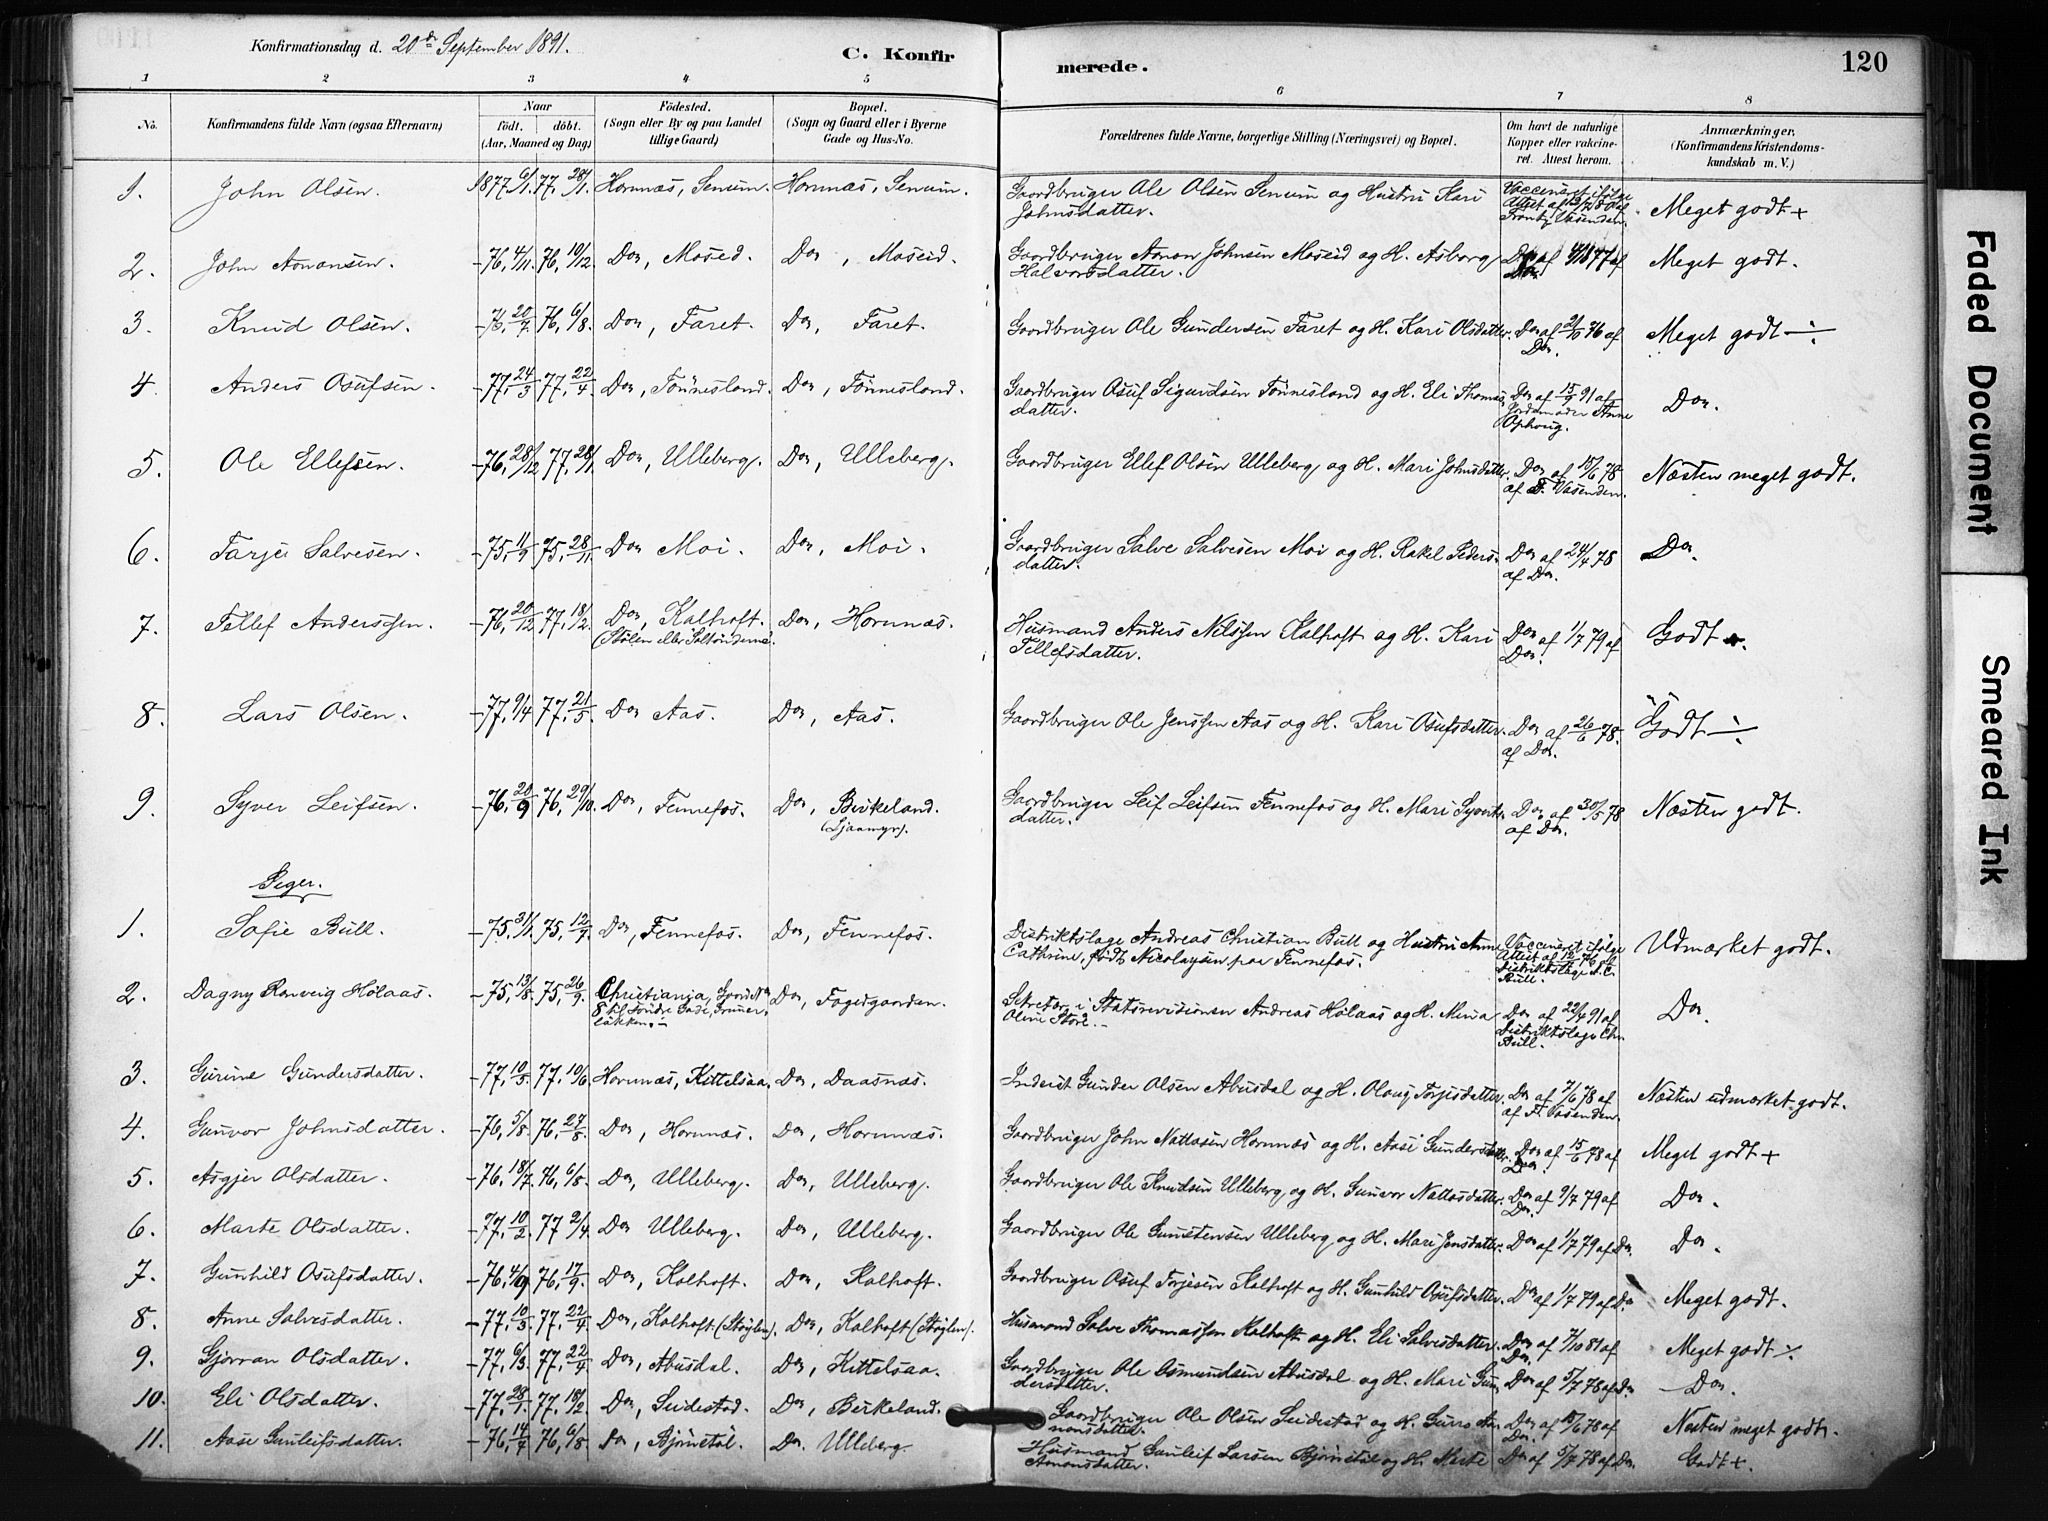 Konfirmationsdag d. 20de September 1891.
C. Konfirmerede.
120
1 2 3 4 5 6 7 8
No.
Konfirmandens fulde Navn (ogsaa Efternavn)
Naar
født. døbt.
(Aar, Maaned og Dag)
Fødested.
(Sogn eller By og paa Landet
tillige Gaard)
Bopæl.
(Sogn og Gaard eller i Byerne
Gade og Hus-No.
Forældrenes fulde Navne, borgerlige Stilling (Næringsvei) og Bopæl.
Om havt de naturlige
Kopper eller vakcine-
ret. Attest herom.
Anmærkninger,
(Konfirmandens Kristendoms-
kundskab m. V.)
1. John Olsen. 1877 6/1. 77. 28/1. Hornnæs, Senum. Hornnæs, Senum. Gaardbruger Ole Olsen Senum og Hustru Kari
Johnsdatter. Vaccineret ifølge
Attest af Meget godt +
2. John Aanonsen. -76, 4/11. 76, 10/12. Do, Mosed. Do, Moseid. Gaardbruger Aanon Johnsen Moseid og H. Asborg
Halvorsdatter. Meget godt.
3. Knud Olsen. -76, 20/7. 76, 6/8. Do, Faret. Do, Faret. Gaardbruger Ole Gundersen Faret og H. Kari Olsdatter. Do af 76 af
Do. Meget godt ÷
4. Anders Osufsen. -77, 24/3 77, 22/4. Do, Tønnesland. Do, Tønnesland. Gaardbruger Osuf Sigurdsen Tønnesland og H. Eli Thomas-
datter. Do af 15/9 91 af
Jordmoder Anne
Ophoug. Do.
5. Ole Ellefsen. -76, 28/12 77, 28/1. Do, Ulleberg. Do, Ulleberg. Gaardbruger Ellef Olsen Ulleberg og H. Mari Johnsdatter. Do af 15/6 78
af T. Vasenden. Næsten meget godt.
6. Tarje Salvesen. -75, 11/9 75, 28/11. Do Moi. Do, Moi. Gaardbruger Salve Salvesen Moi og H. Rakel Peders-
datter. Do af 24/4 78
af Do. Do.
7. Tellef Anderssen. -76, 20/12 77, 18/2. Do, Kalhoft. Do, Hornnæs. Husmand Anders Nilssen Kalhoft og H. Kari
Tellefsdatter. Do af 1/7 79 af
Do. Godt +.
8. Lars Olsen. -77, 9/4 77, 21/5. Do Aas. Do, Aas. Gaardbruger Ole Jenssen Aas og H. Kari Osufsdatter. Do af 26/6 78.
af Do. Godt ÷
9. Syver Leifsen. -76, 20/9 76, 29/10. Do, Fennefos. Do, Birkeland.
(Ljaamyr). Gaardbruger Leif Leifsen Fennefos og H. Mari Syverts-
datter. Do. af 30/5 78
af Do. Næsten godt.
Piger.
1. Sofie Bull. -75, 31/1. 75, 12/7. Do, Fennefos. Do, Fennefos. Distriktslæge Andreas Christian Bull og Hustru Anne
Cathrine, født Nicolaysen paa Fennefos. Vaccineret ifølge
Attest af 76 af
Distriktslæge A. C.
Bull. Udmærket godt.
2. Dagny Ranveig Holaas. -75, 13/8. 75, 26/9. Christiania, Gaard No
8 Søndre Gade, Gruner-
løkken. Do, Fogedgaarden. Sekretær i Statsrevisionen Andreas Holaas og H. Mina
Oline Støre. Do af 22/4 91 af
Distriktslæge Chr.
Bull. Do.
3. Gurine Gundersdatter. -77, 10/5. 77, 10/6. Hornnæs, Kittelsaa. Do, Daasnæs. Inderst Gunder Olsen Abusdal og H. Olaug Torjesdatter. Do af 7/6 78 af
af T. Vasenden. Næsten udmærket godt.
4. Gunvor Johnsdatter. -76, 5/8. 76, 27/8. Do, Hornnæs. Do, Hornnæs. Gaardbruger John Nattasen Hornnæs og H. Aase Gundersdatter. Do af 15/6 78 af
Do. Meget godt +
5. Asgjer Olsdatter. -76, 18/7. 76, 6/8. Do, Ulleberg. Do, Ulleberg. Gaardbruger Ole Knudsen Ulleberg og H. Gunvor Nattasdatter. Do af 9/7 79 af
Do. Do.
6. Marte Olsdatter. -77, 10/2. 77 2/4. Do Ulleberg. Do, Ulleberg. Gaardbruger Ole Gunstensen Ulleberg og H. Mari Jensdatter. Do af 1/7 79 af Do. Do.
7. Gunhild Osufsdatter. -76, 4/9 76, 17/9. Do, Kalhoft. Do, Kalhoft. Gaardbruger Osuf Torjesen Kalhoft og H. Gunhild Osufsdatter. Do af 1/7 79 af Do Meget godt.
8. Anne Salvesdatter. -77, 10/3. 77, 22/4. Do, Kalhoft (Støylen). Do, Kalhoft (Støylen). Husmand Salve Thomassen Kalhoft og H. Eli Salvesdatter. Do af 7/10 81 af
Do. Meget godt ÷
9. Gjøran Olsdatter. -77, 6/3. 77, 22/4. Do, Abusdal. Do, Kittelsaa. Gaardbruger Ole Osmundsen Abusdal og H. Mari Gun-
dersdatter. Do af 5/7 78 af Do Do.
10. Eli Olsdatter. -77, 28/1. 77, 18/2. Do, Seidestad. Do, Birkeland. Gaardbruger Ole Olsen Seidestad og H. Gurro Aa-
nonsdatter. Do af 15/6 78 af
Do. Næsten meget godt.
11. Aase Gunleifsdatter. -76, 14/7 76, 6/8 Do, Bjønstøl. Do. Ulleberg. Husmand Gunleif Larsen Bjønstøl og H. Marte
Aanonsdatter. Do af 5/7 78 af Do. Godt +.
Faded Document
Smeared Ink